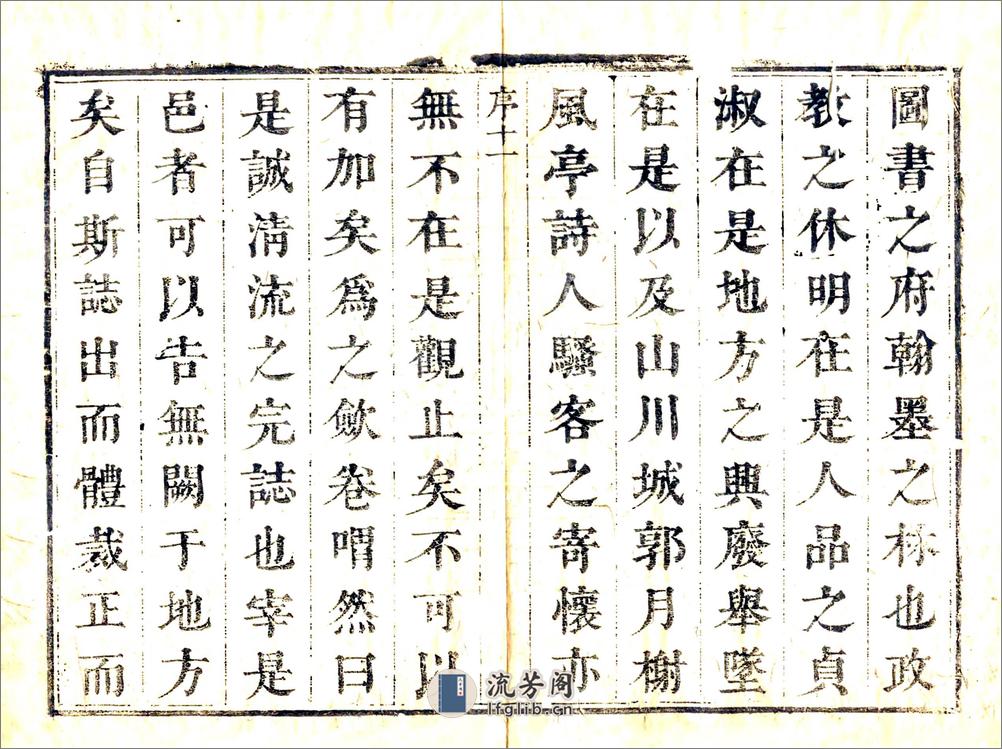 圖書之府翰墨之林也政
教之休明在是人品之貞
淑在是地方之興廢舉墜
在是以及山川城郭月榭
風亭詩人騷客之寄懷亦
序十一
無不在是觀止矣不可以
有加矣爲之歛卷喟然曰
是誠淸流之完誌也宰是
邑者可以告無闕于地方
矣自斯誌出而體裁正而
流芳阁
lfglib.cn